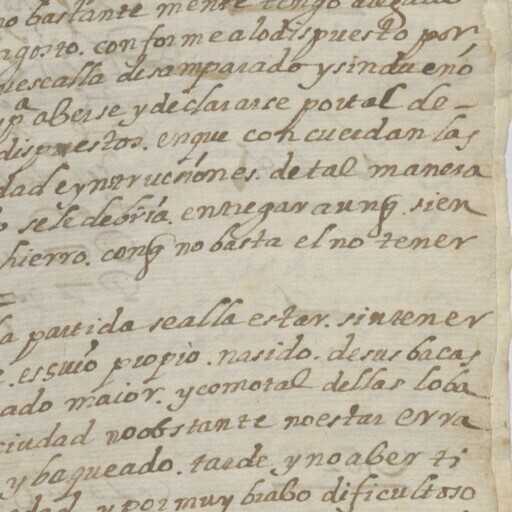 no bastante mente tengo
agosto. conforme alo dispuesto por
escalla desamparado ysindueño
pa aberse y declararse portal de-
dispuestos. enque concuerdan las
dad eynstrucsiones. detal manera
sele debria. entregar aunq sien
hierro. conq no basta el no tener
la partida sealla estar. sintener
. essuio propio. nasido. desus bacas
ado maior. ycomotal dellas loba
ciudad noobstante noestar erra
y baqueado. tarde ynoaber ti
y pormuy brabo dificultoso